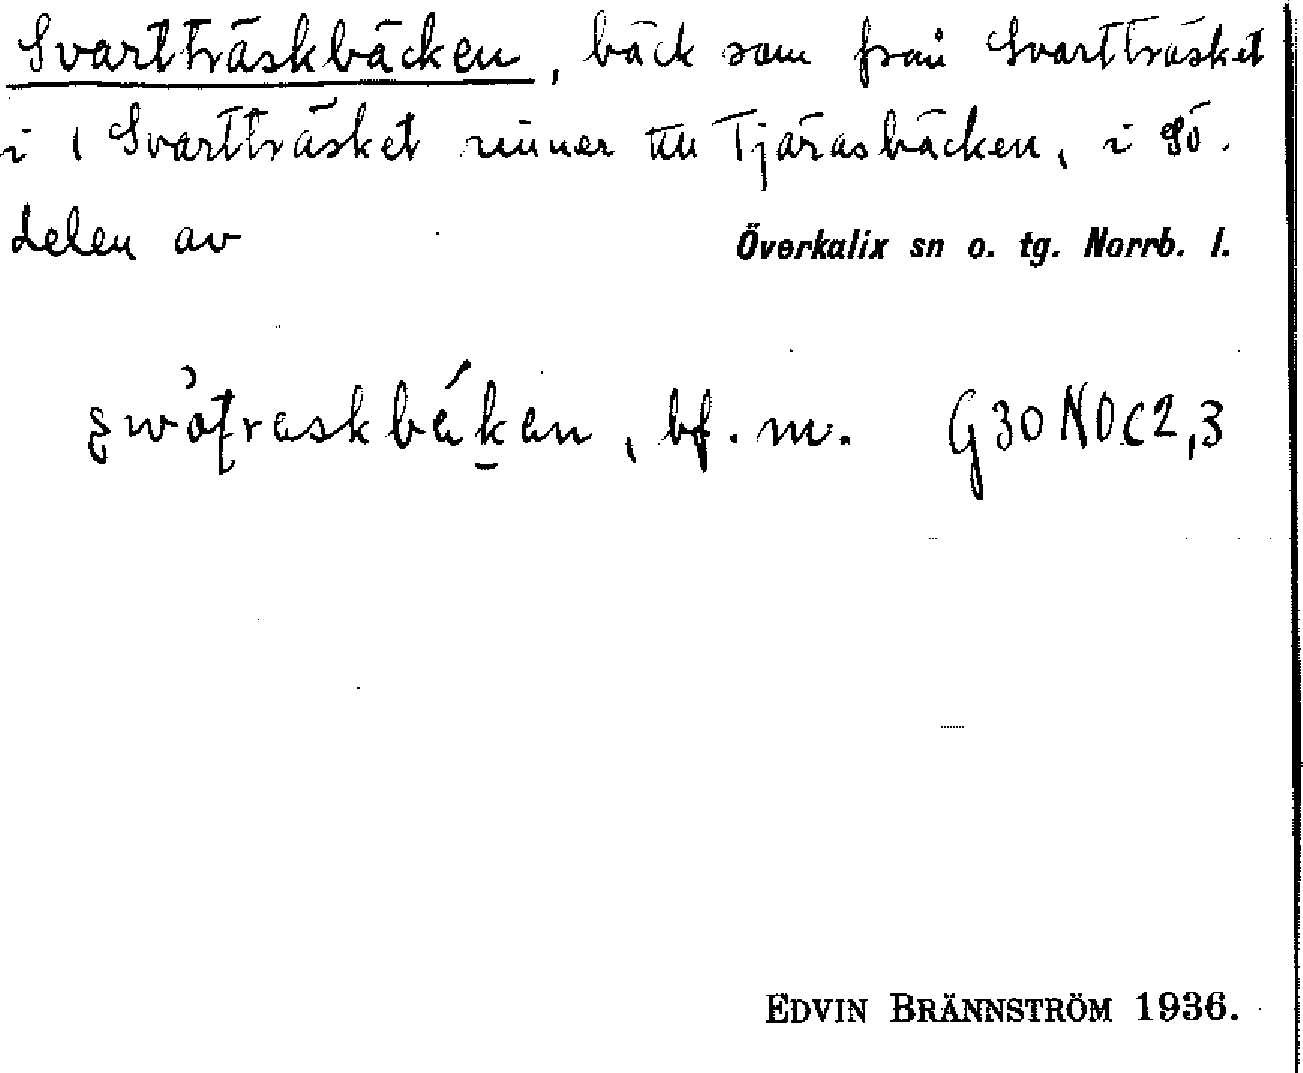 Svartträskbäcken, bäck som från Svartträsket
i 1 Svartträsket rinner till Tjäråsbäcken, i sö.
delen av Överkalix sn o. tg. Norrb. l.
bf. m. G30NOc2,3
EDVIN BRÄNNSTRÖM 1936.